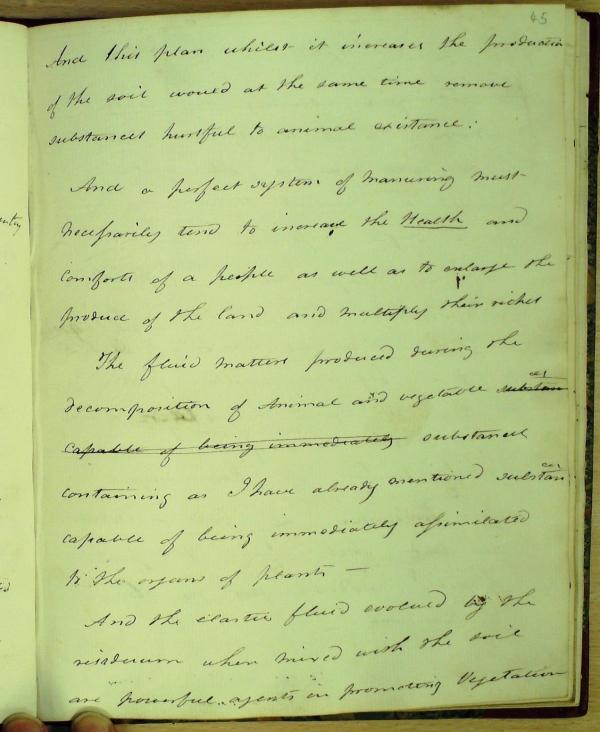 45
And this plan whilst it increases the production
of the soil would at the same time remove
substances hurtful to animal existance:
And a perfect system of manuring must
necessarily tend to increase the Health and
comforts of a people as well as to enlarge the
produce of the land and multiply their riches
The fluid matters produced during the
decomposition of Animal and vegetable substances
capable of being immediately substances
containing as I have already mentioned substances
capable of being immediately assimilated
to the organs of plants —
And the elastic fluid evolved by the
residuum when mixed with the soil
are powerful agents in promoting Vegetation